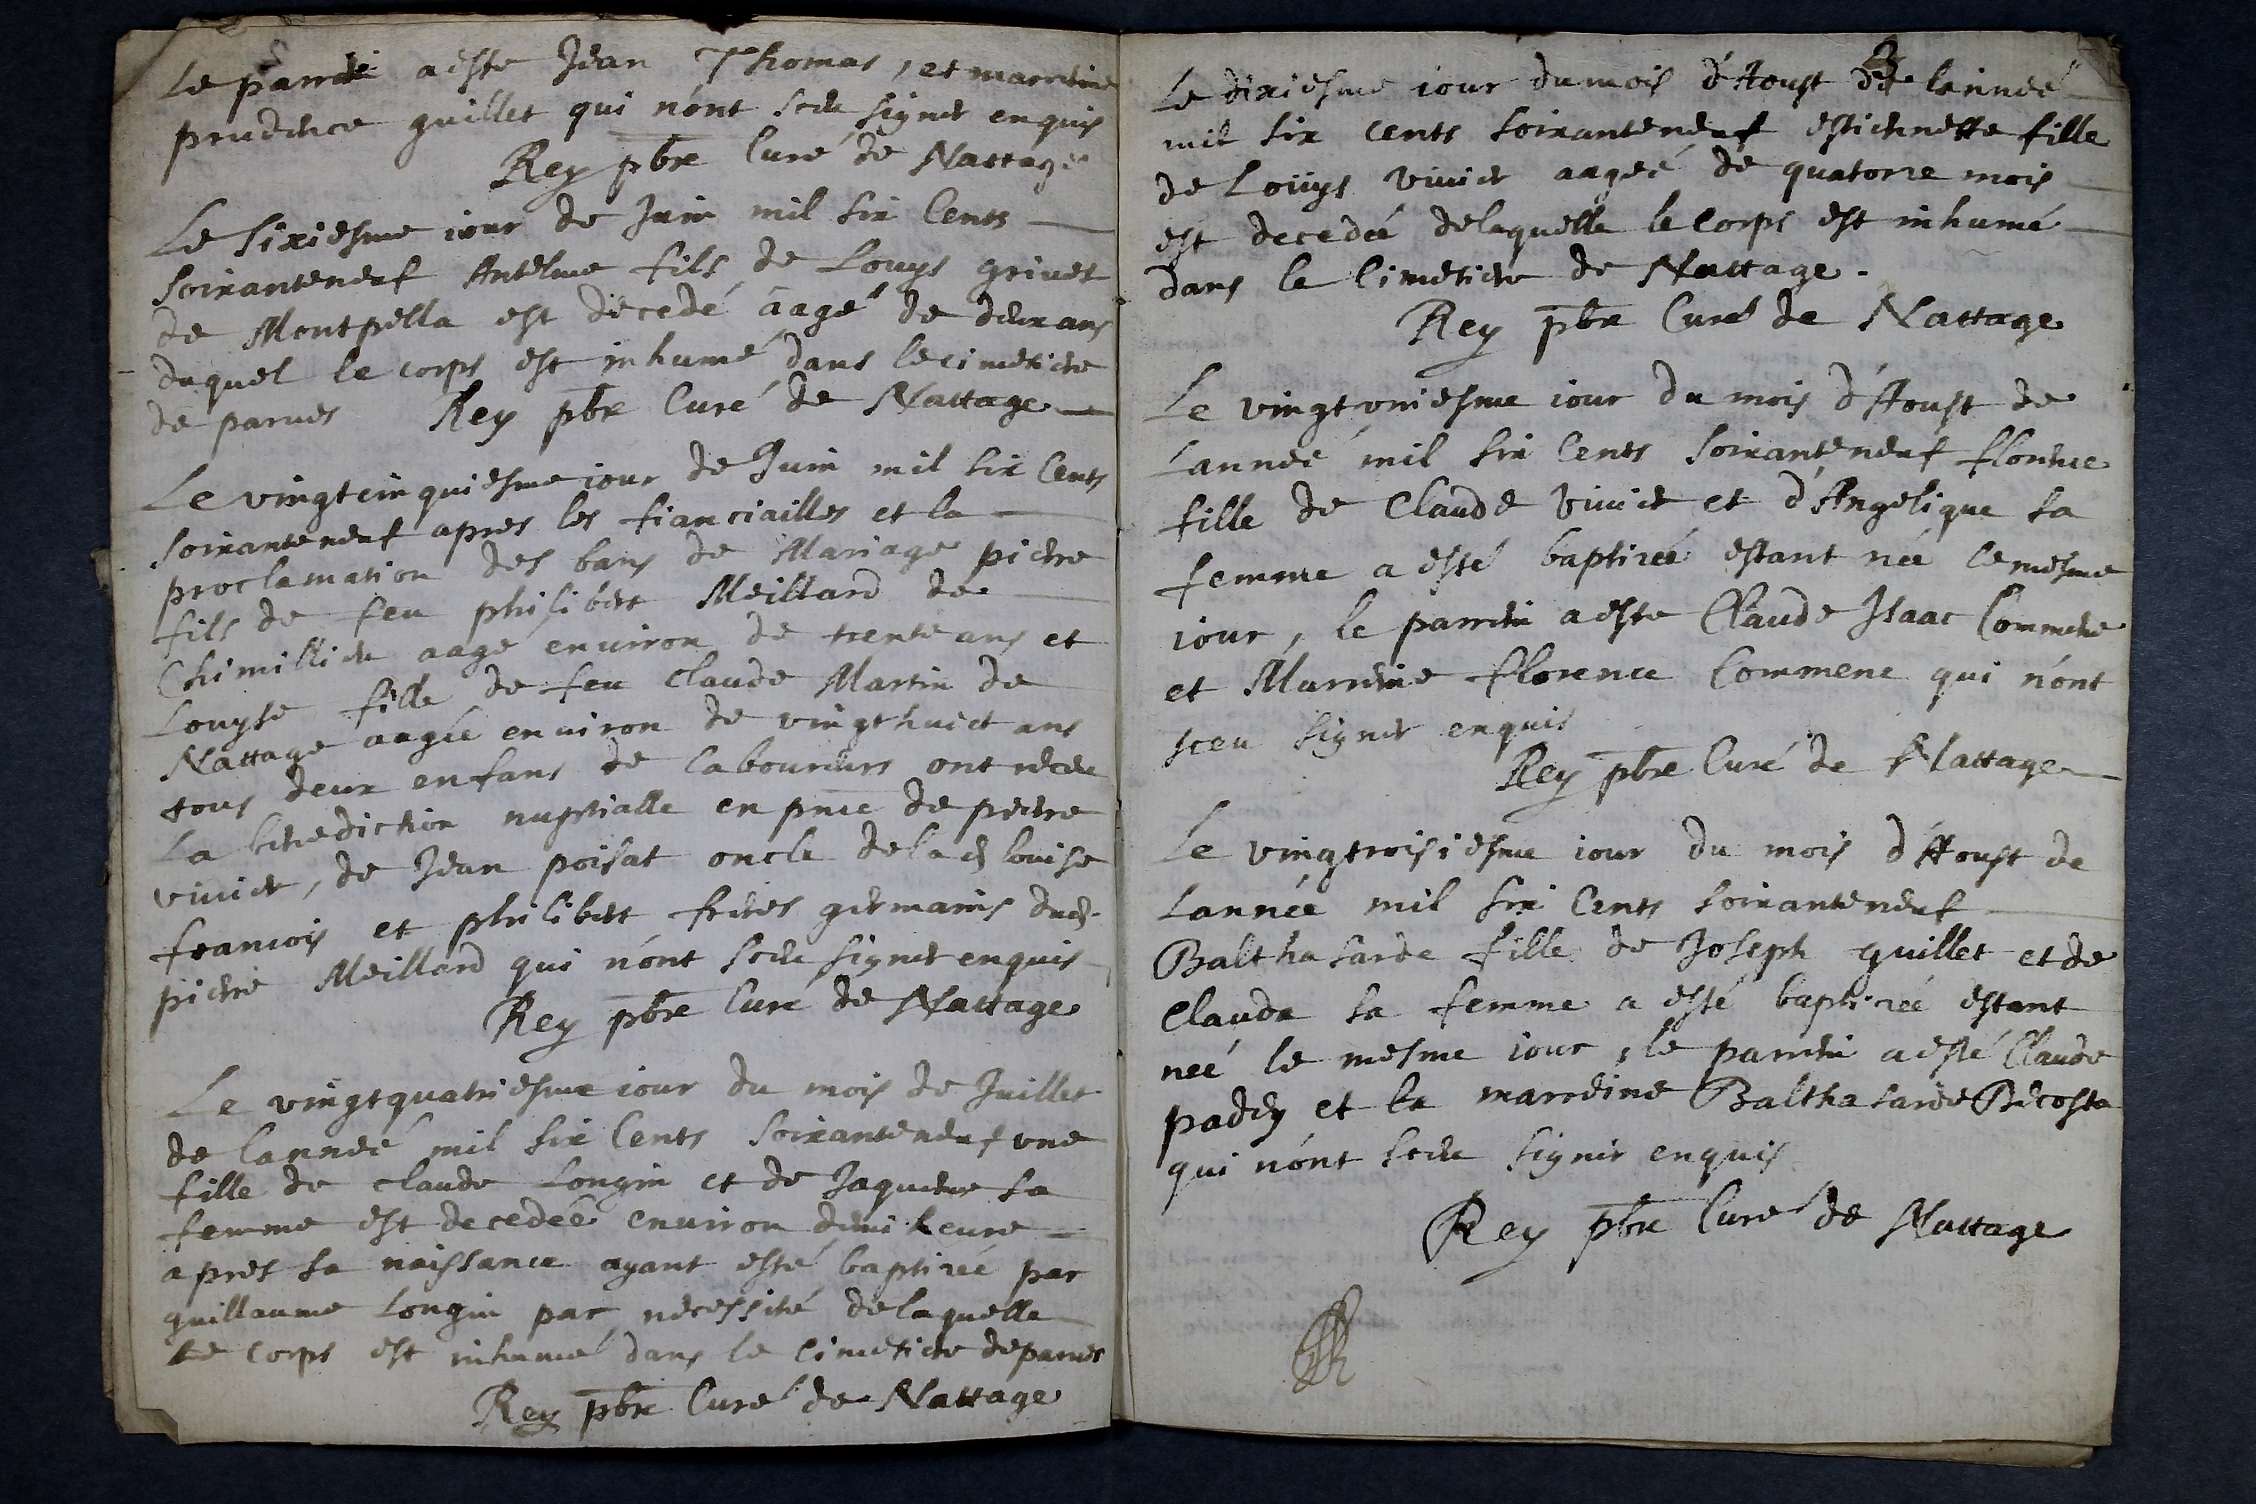 Le parrein a este Jean Thomas, et marreine
prudence guillet qui n'ont sceu signer enquis
Rey pbre Curé de Nattage
Le sixiesme iour de Juin mil six Cents
soixanteneuf Antelme fils de Louys grivet
de Montpella est decedé aagé de deux ans
duquel le corps est inhumé dans le cimetiere
de parves Rey pbre Curé de Nattage
Le vingtcinquiesme iour de Juin mil six Cents
soixanteneuf apres les fianciailles et la
proclamation des bans de Mariage pierre
fils de feu philibert Meillard de
Chimillieu aagé environ de trente ans et
Louyse fille de feu Claude Martin de
Nattage aagée environ de vingthuict ans
tous deux enfans de laboureurs ont receu
La benediction nuptialle en pnce de pierre
vivier, de Jean poisat oncle de lad louise
francois et philibert freres germains dud.
pierre Meillard qui n'ont sceu signer enquis
Rey pbre Curé de Nattage
Le vingtquatriesme iour du mois de Juillet
de l'anneé mil six Cents soixanteneuf vne
fille de claude Longin et de Jaqueme sa
femme est decedeé environ demi heure
apres sa naissance ayant esté baptizée par
guillaume Longin par necessité delaquelle
le corps est inhumé dans le Cimetiere de parves
Rey pbre Curé de Nattage
3
Le dixiesme iour du mois d'Aoust de lanneé
mil six cents soixanteneuf estiennette fille
de Loüys vivier aageé de quatorze mois
est decedée delaquelle le corps est inhumé
dans le Cimetiere de Nattage.
Rey pbre Curé de Nattage
Le vingtvniesme iour du mois d'Aoust de
Lanneé mil six Cents soixanteneuf florence
fille de Claude vivier et d'Angelique sa
femme a esté baptizée estant née le mesme
iour, le parrein a este Claude Isaac Commene
et Marreine florence Commene qui n'ont
sceu signer enquis
Rey pbre Curé de Nattage
Le vingtroisiesme iour du mois d'Aoust de
Lannée mil six Cents soixanteneuf
Balthasarde fille de Joseph guillet et de
Claude sa femme a esté baptizée estant
neé le mesme iour, le parrein a esté Claude
padey et la marreine Balthasarde Decosta
qui n'ont sceu signer enquis
Rey pbre Curé de Nattage